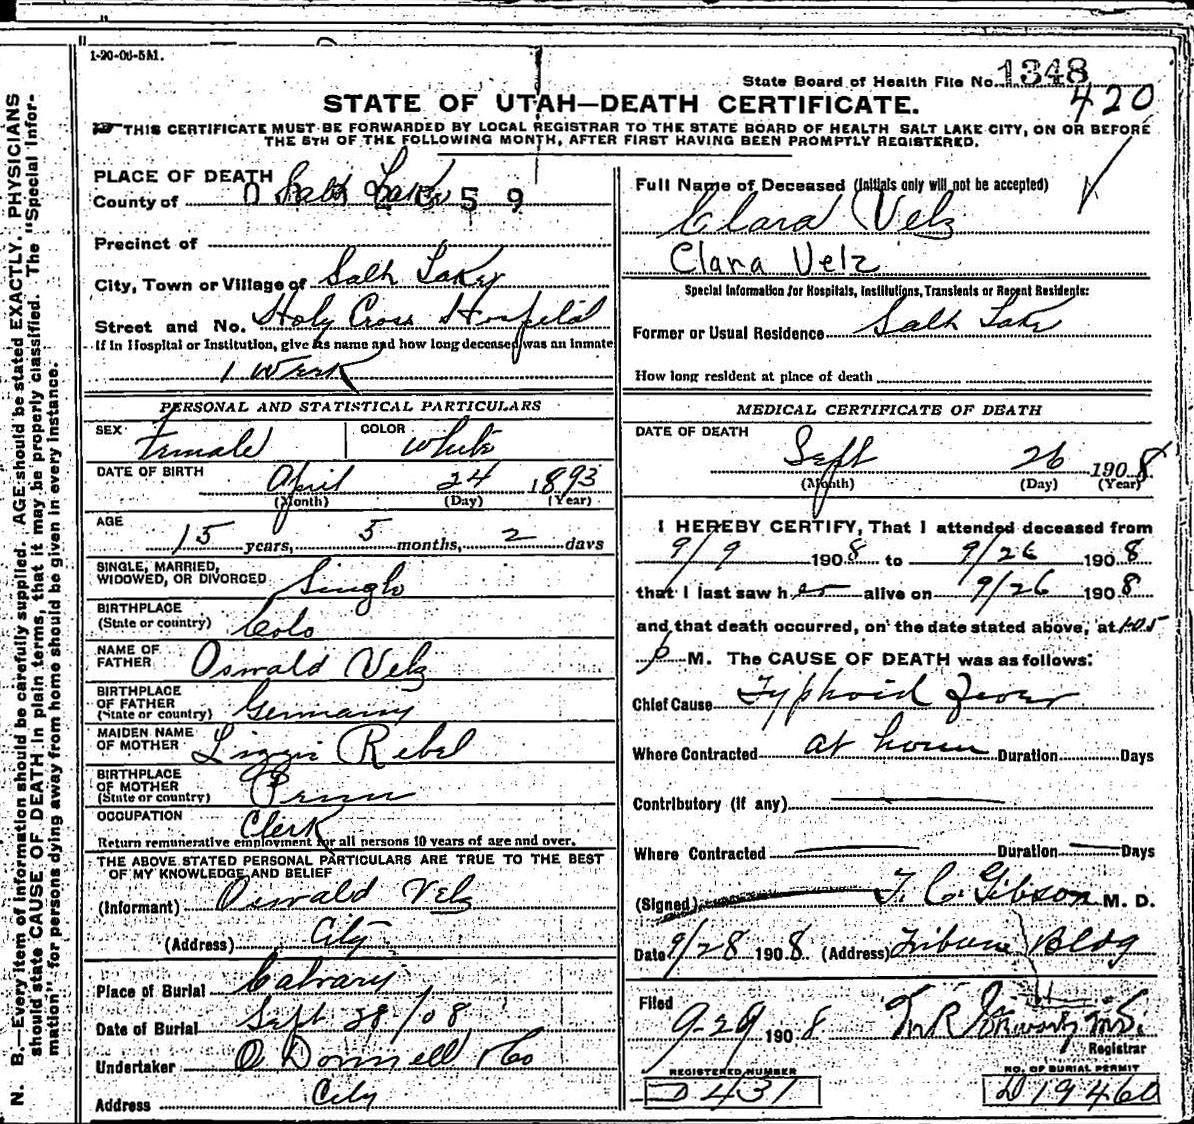 1-20-06-5M.
State Board of Health File No. 1348
420
STATE OF UTAH—DEATH CERTIFICATE.
THIS CERTIFICATE MUST BE FORWARDED BY LOCAL REGISTRAR TO THE STATE BOARD OF HEALTH SALT LAKE CITY, ON OR BEFORE
THE 5TH OF THE FOLLOWING MONTH, AFTER FIRST HAVING BEEN PROMPTLY REGISTERED.
PLACE OF DEATH
County of Salt Lake 59
Precinct of
City, Town or Village of Salt Lake
Street and No. Holy Cross Hospital
If in Hospital or Institution, give its name and how long deceased was an inmate
1 Week
PERSONAL AND STATISTICAL PARTICULARS
SEX Female COLOR White
DATE OF BIRTH April 24 1893
(Month) (Day) (Year)
AGE 15 years, 5 months, 2 days
SINGLE, MARRIED,
WIDOWED, OR DIVORCED Single
BIRTHPLACE
(State or country) Colo
NAME OF
FATHER Oswald Velz
BIRTHPLACE
OF FATHER
(State or country) Germany
MAIDEN NAME
OF MOTHER Lizzie Rebel
BIRTHPLACE
OF MOTHER
(State or country) Penn
OCCUPATION Clerk
Return remunerative employment for all persons 10 years of age and over.
THE ABOVE STATED PERSONAL PARTICULARS ARE TRUE TO THE BEST
OF MY KNOWLEDGE AND BELIEF
(Informant) Oswald Velz
(Address) City
Place of Burial Calvary
Date of Burial Sept 28/08
Undertaker O Donnell & Co
Address City
Full Name of Deceased (Initials only will not be accepted)
Clara Velz
Clara Velz
Special Information for Hospitals, Institutions, Transients or Recent Residents:
Former or Usual Residence Salt Lake
How long resident at place of death
MEDICAL CERTIFICATE OF DEATH
DATE OF DEATH
Sept 26 1908
(Month) (Day) (Year)
I HEREBY CERTIFY, That I attended deceased from
9/9 1908 to 9/26 1908
that I last saw her alive on 9/26 1908
and that death occurred, on the date stated above, at 1.05
p M. The CAUSE OF DEATH was as follows:
Chief Cause Typhoid Fever
Where Contracted at home Duration Days
Contributory (if any)
Where Contracted Duration Days
(Signed) F. C. Gibson M. D.
Date 9/28 1908 (Address) Tribune Bldg
Filed
9-29 1908
Registrar
REGISTERED NUMBER
D 431
NO. OF BURIAL PERMIT
D 19460
N. B.—Every item of information should be carefully supplied. AGE should be stated EXACTLY. PHYSICIANS
should state CAUSE OF DEATH in plain terms, that it may be properly classified. The "Special Infor-
mation" for persons dying away from home should be given in every instance.